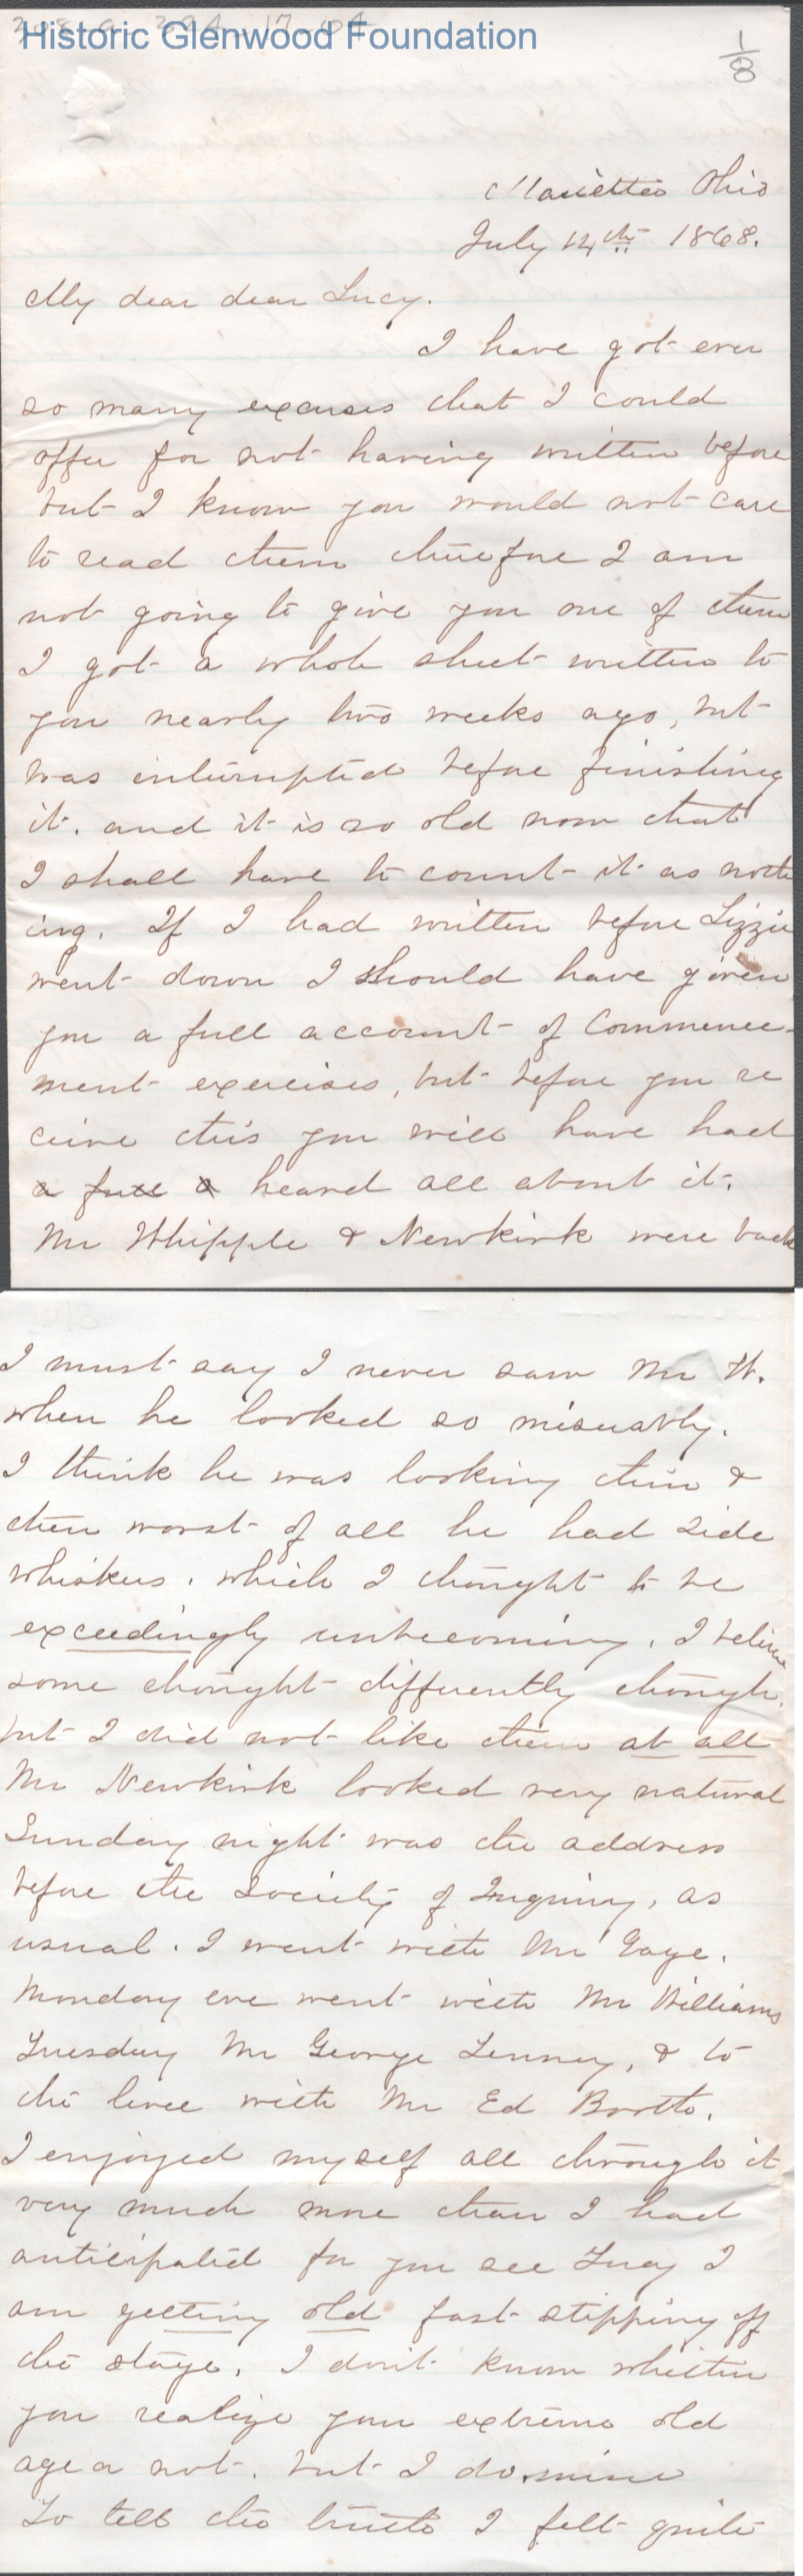 Historic Glenwood Foundation
1/8
Marietta Ohio
July 14th 1868.
My dear dear Lucy.
I have got ever
so many excuses that I could
offer for not having written before
but I know you would not care
to read them therefore I am
not going to give you one of them
I got a whole sheet written to
you nearly two weeks ago, but
was interrupted before finishing
it. and it is so old now that
I shall have to count it as noth
ing. If I had written before Lizzie
went down I should have given
you a full account of Commence-
ment exercises, but before you re
ceive this you will have had
a full a heard all about it.
Mr Whipple & Newkirk were back
I must say I never saw Mr W.
when he looked so miserably.
I think he was looking thin &
then worst of all he had side
whiskers. which I thought to be
exceedingly unbecoming. I believe
some thought differently though.
but I did not like them at all
Mr Newkirk looked very natural
Sunday night was the address
before the Society of Inquiry, as
usual. I went with Mr Gage.
Monday eve went with Mr Williams
Tuesday Mr George Tenney, & to
the levee with Mr Ed
I enjoyed myself all through it
very much more than I had
anticipated for you see Lucy I
am getting old fast stepping off
the stage. I don't know whether
you realize your extreme old
age or not. but I do mine
To tell the truth I felt quite